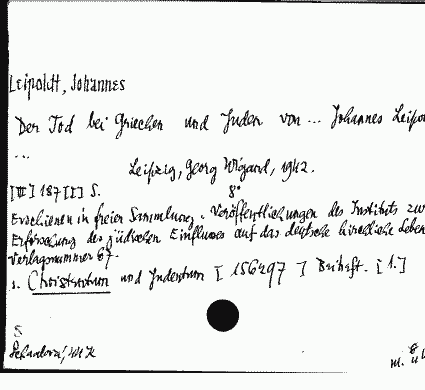 Leipoldt, Johannes
Der Tod bei Griechen und Juden von ... Johannes Leipo
...
Leipzig, Georg Wigand, 1942.
[III] 187 [I] S. 8°
Erschienen in freier Sammlung. Veröffentlichungen des Instituts zur
Erforschung des jüdischen Einflusses auf das deutsche kirchliche Leben
Verlagsnummer 67.
1. Christentum und Judentum [ 156297 ] Beiheft. [1.]
S
m. 8